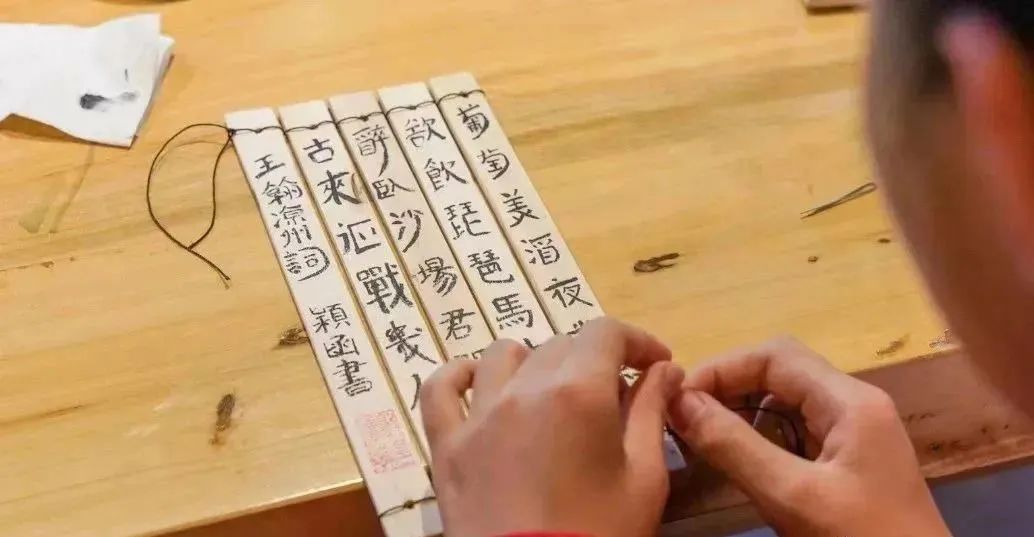 葡萄美酒夜
欲飲琵琶馬
醉臥沙場君
古來征戰幾人
王翰涼州詞 穎函書